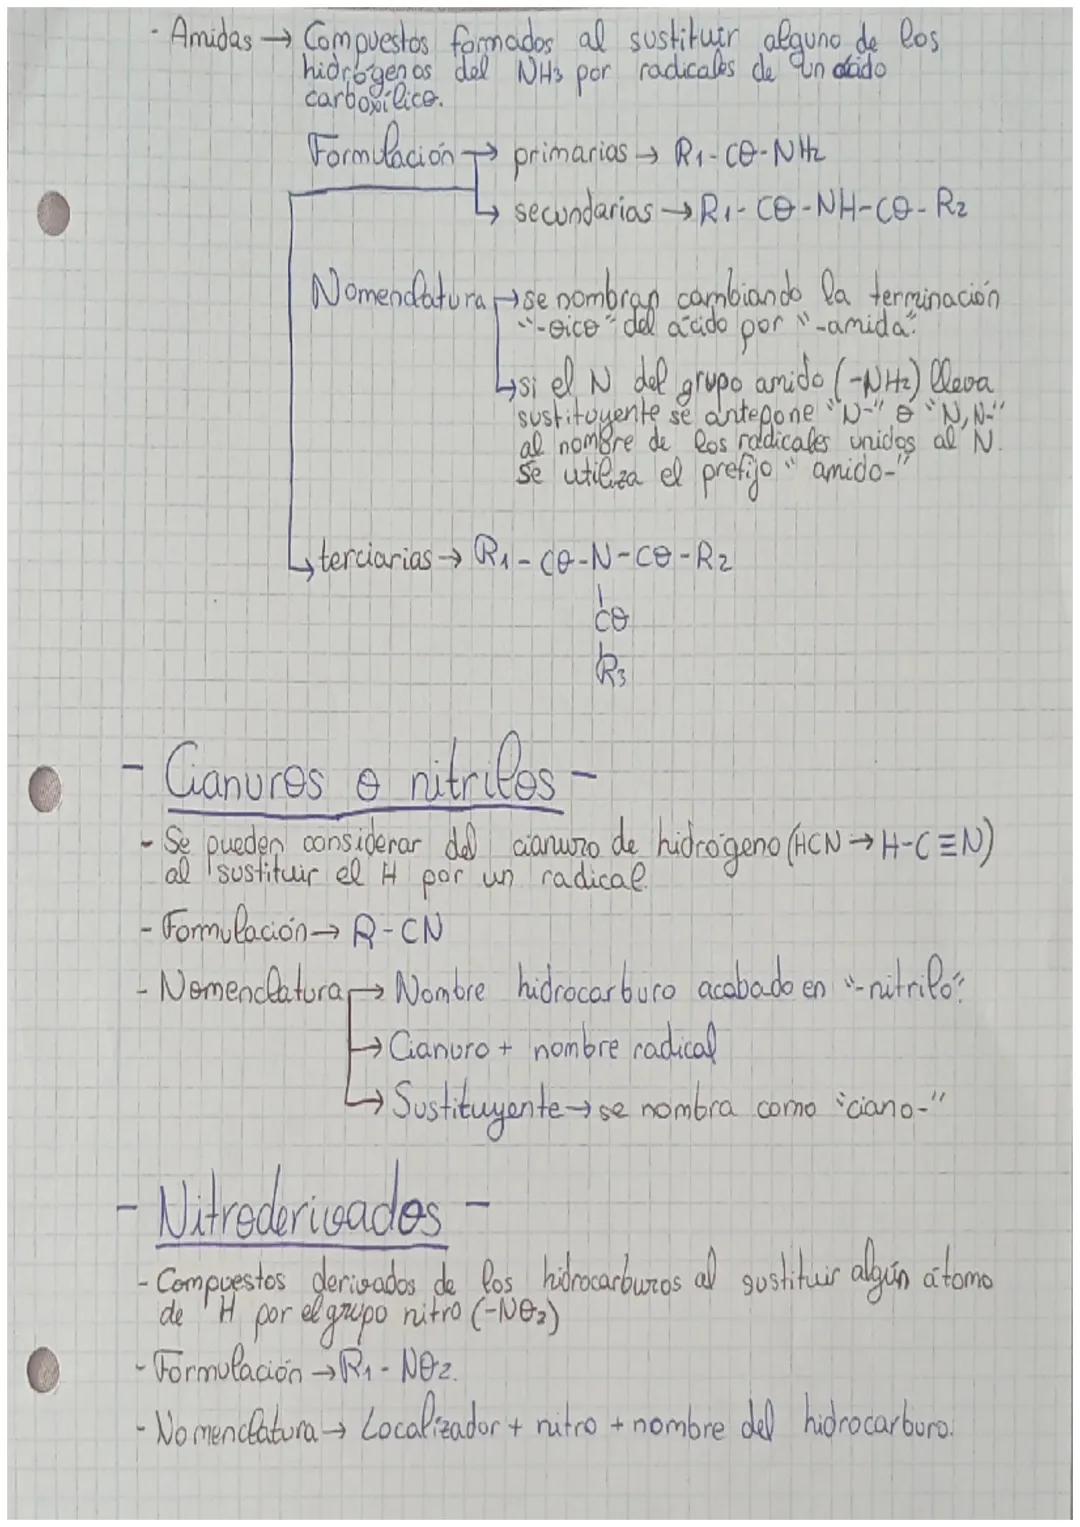 - Amidas → Compuestos formados al sustituir alguno de los
hidrógenos del NH3 por radicales de un ácido
carboxílico.
Formulación → primarias → R1-CO-NH2
→ secundarias → R1-CO-NH-CO-R2
Nomenclatura → se nombran cambiando la terminación
"-oico" del ácido por "-amida".
→ si el N del grupo amido (-NH2) lleva
sustituyente se antepone "N-" o "N,N-"
al nombre de los radicales unidos al N.
Se utiliza el prefijo "amido-"
→ terciarias → R1-CO-N-CO-R2
CO
R3
- Cianuros o nitrilos -
- Se pueden considerar del cianuro de hidrógeno (HCN → H-C≡N)
al sustituir el H por un radical.
- Formulación → R-CN
- Nomenclatura → Nombre hidrocarburo acabado en "-nitrilo".
→ Cianuro + nombre radical
→ Sustituyente → se nombra como "ciano-"
- Nitroderivados -
- Compuestos derivados de los hidrocarburos al sustituir algún átomo
de H por el grupo nitro (-NO2)
- Formulación → R1-NO2.
- Nomenclatura → Localizador + nitro + nombre del hidrocarburo.